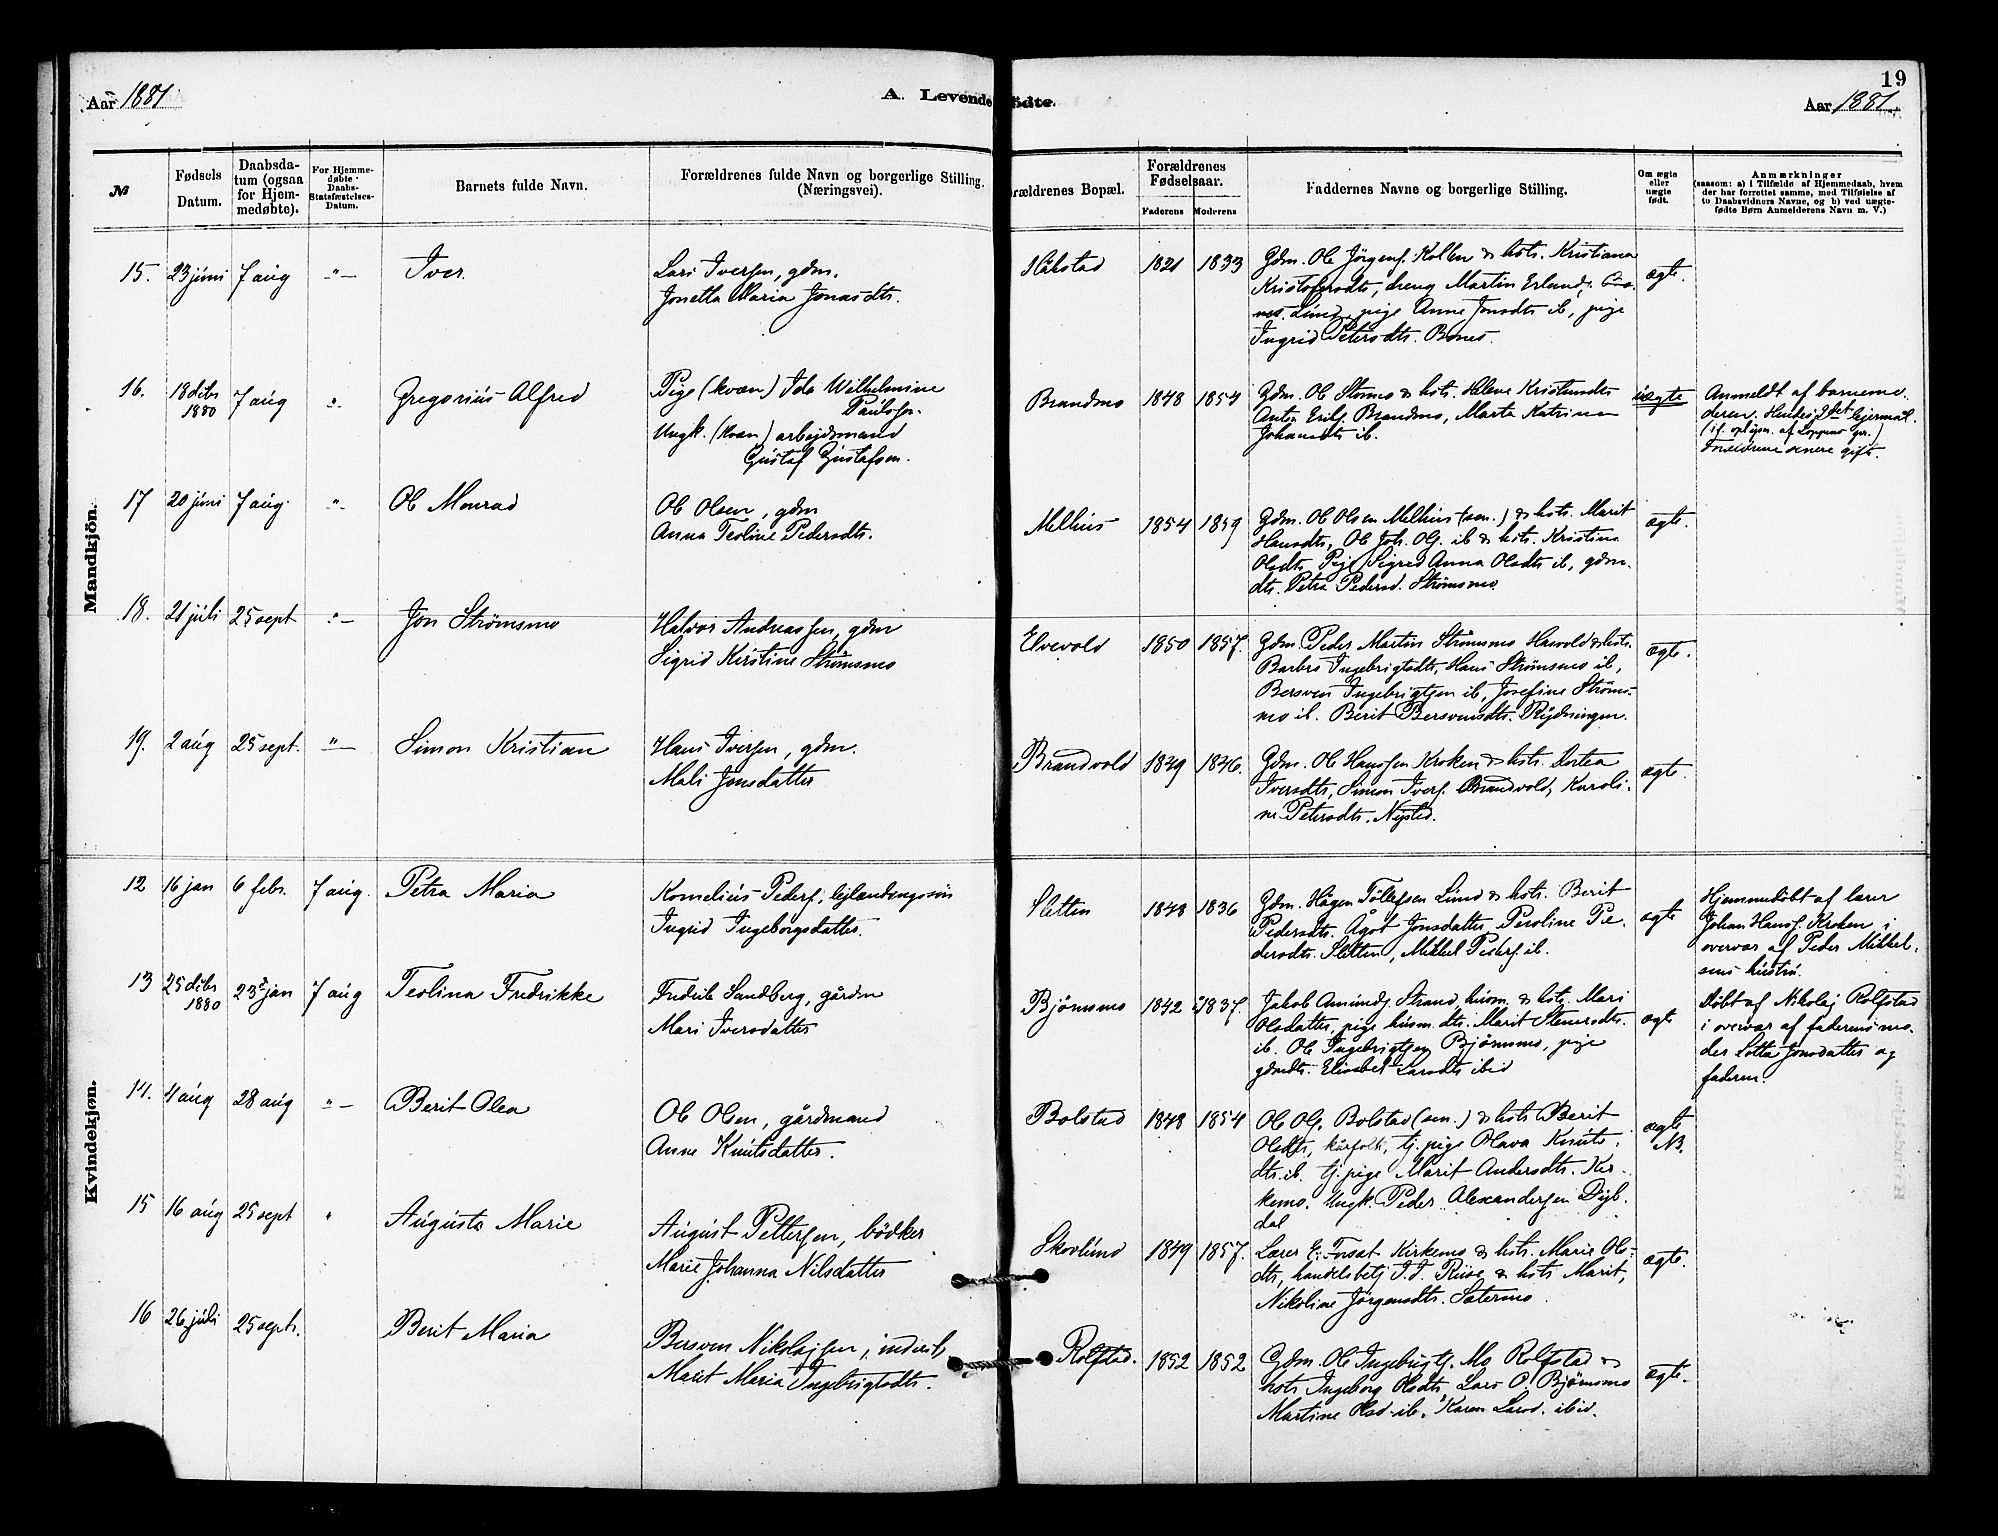 19
Aar 1881
A. Levende
ödte.
Aar 1881
№
Fødsels Datum.
Daabsda-
tum (ogsaa
for Hjem-
medøbte).
For Hjemme-
døbte
Daabs-
Statsfæstelses-
Datum.
Barnets fulde Navn.
Forældrenes fulde Navn og borgerlige Stilling.
(Næringsvei).
orældrenes Bopæl.
Forældrenes
Fødselsaar.
Faderens
Moderens
Faddernes Navne og borgerlige Stilling.
Om ægte
eller
uægte
født.
Anmærkninger
(saasom: a) i Tilfælde af Hjemmedaab, hvem
der har forrettet samme, med Tilføielse af
to Daabsvidners Navne, og b) ved uægte-
fødte Børn Anmelderens Navn m. V.)
Mandkjön.
15. 23 juni 7 aug " Iver.
Lars Iversen, gdm.
Jonetta Maria Jonasdts.
1821 1833
Gdm. Ole Jörgens. Kolben & hstr. Kristiana
Kristofersdts, dreng Martin Erlands.
Lund, pige Anne Jonsdts ib, pige
Ingrid Petersdts. Bones.
ægte.
16. 18 debr 1880 7 aug " Gregorius Alfred
Pige (kvæn) Ida Wilhelmine
Paulosn.
Ungk. (kvæn) arbejdsmand
Gustaf Gustafsen.
Brandmo 1848 1854
Gdm. Ole Stormo & hstr. Helene Kristundts
Anton Eriks. Brandmo, Marta Katrina
Johansdts ib.
uægte
Anmeldt af barnemo-
deren. Hendes 2det lejermål.
Forældrene senere gift.
17 20 juni 7 aug. " Ole Monrad
Ole Olsen, gdm
Anna Teoline Pedersdts.
Melhus 1854 1859
Gdm. Ole Olsen Melhus (sen.) & hstr. Marit
Hansdts, Ole Joh. Ols. ib & hstr. Kristine
Olsdts, Pige Sigrid Anna Olsdts ib, gdm.
dts. Petra Pedersd. Strömsmo.
ægte.
18. 21 juli 25 sept " Jon Strömsmo
Halvor Andreassen, gdm
Sigrid Kirstine Strömsmo
Elvevold 1850 1857.
Gdm. Peder Martin Strömsmo & hstr.
Barbro Ingebrigtsdts, Hans Strömsmo ib,
Bersven Ingebrigtsen ib, Josefine Ströms-
mo ib. Berit Bersvensdts. Rydningen.
ægte.
19. 2 aug 25 sept. " Simon Kristian
Hans Iversen, gdm.
Mali Jonsdatter
Brandvold 1849 1846.
Gdm. Ole Hanssen Kroken & hstr. Dortea
Iversdts, Simon Ivers. Brandvold, Karoli-
ne Petersdts. Nysted.
ægte.
Kvindekjøn.
12 16 jan 6 febr. 7 aug. Petra Maria
Kornelius Peders, lejlendingssön
Ingrid Ingeborgsdatter.
Sletten 1848 1836
Gdm. Hågen Tollefsen Lund & hstr. Berit
Pedersdts. Ågot Jonsdatter, Peroline Pe-
dersdts. Sletten, Mikkel Peders. ib.
ægte
Hjemmedöbt af lærer
Johan Hans. Kroken i
overvær af Peder Mikkel-
sens hustru.
13 25 debr 1880 23de jan 7 aug Teolina Fredrikke
Fredrik Sandberg, gårdm
Mari Iversdatter
Björnsmo 1842 1837.
Jakob Amunds. Strand, husm. & hstr. Mari
Olsdatter, pige husm. dts. Marit Stensdts.
ib. Ole Ingebrigtsen Björnsmo, pige
gdmdts. Elisabet Larsdts ibid
ægte
Döbt af Nikolaj Rolfstad
i overvær af faderens mo-
der Lotta Jonsdatter og
faderen.
14. 4 aug 28 aug " Berit Olea
Ole Olsen, gårdmand
Anne Knutsdatter.
Bolstad 1848 1854
Ole Ols. Bolstad (sen.) & hstr Berit
Olsdts, kårfolk, tj. pige Olava Knuts-
dts. ib. tj. pige Marit Andersdts. Kir-
kemo. Ungk. Peder Alexandersen Dyb-
dal
ægte
NB.
15 16 aug 25 sept " Augusta Marie
August Pettersen, bödker
Marie Johanna Nilsdatter
Skovlund 1849 1857.
Lærer E. Forsat Kirkemo & hstr. Marie Ols-
dts, handelsbetj I. I. Ruse & hstr Marit,
Nikoline Jörgensdts. Sætermo.
ægte.
16 26 juli 25 sept. Berit Maria
Bersven Nikolajsen, inderst,
Marit Maria Ingebrigtsdts.
Rolfstad. 1852 1852
Gdm. Ole Ingebrigts. Mo, Rolfstad &
hstr. Ingeborg Olsdts, Lars P. Björnsmo
Martine Olsd. ib. Karen Larsd. ibid.
ægte.